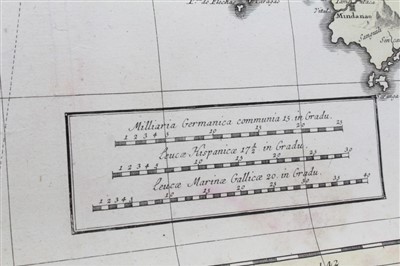 Mindanao
Milliaria Germanica communia 15. in Gradu.
1 2 3 4 5 10 15 20 25
Leucæ Hispanicæ 17½ in Gradu.
1 2 3 4 5 10 15 20 25 30
Leucæ Marinæ Gallicæ 20. in Gradu.
1 2 3 4 5 10 15 20 25 30 35 40
142